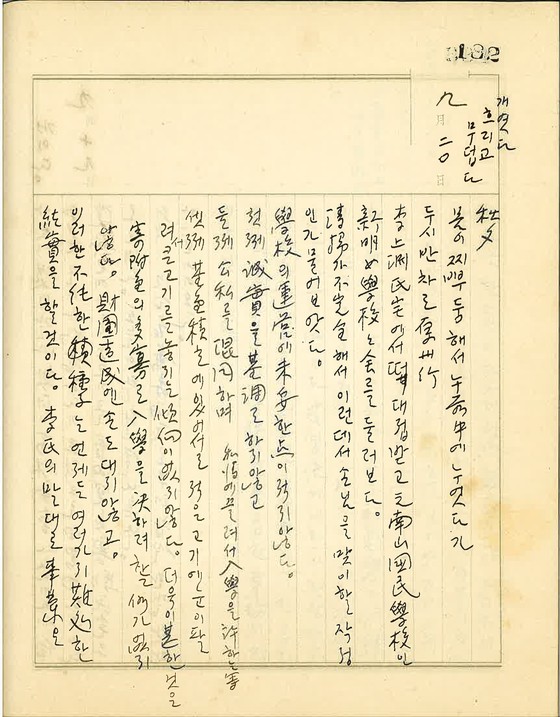 개엿다
흐리고
무덥다
九月二〇日
秋夕
몸이 찌뿌둥해서 누어 中에 누엇다가
두시반차로 原州行
李上渊氏宅에서 떡대접받고 元南山國民學校인
新明女學校舍를 둘러보다。
準備가 不完全해서 이런데서 손님을 맞이할 작정
인가 물어보앗다。
學校의 運営에 未安한 点이 적지 안타。
첫재 誠實을 基調로 하지 않고
둘재 公私를 混同하며 私情에 끌려서 入學을 許하는 等
셋재 基金積立에 있어서로 적은 고기에 눈이 팔
려서 큰 고기를 놓지는 傾向이 없지 않다。더욱이 甚한 것은
寄附金의 多寡로 入學을 決하려 할 例가 없지
않다。財團造成엔 손도 대지 않고。
이러한 不純한 積種는 언제든 여러가지 難処한
結實을 할 것이다。李氏의 말대로